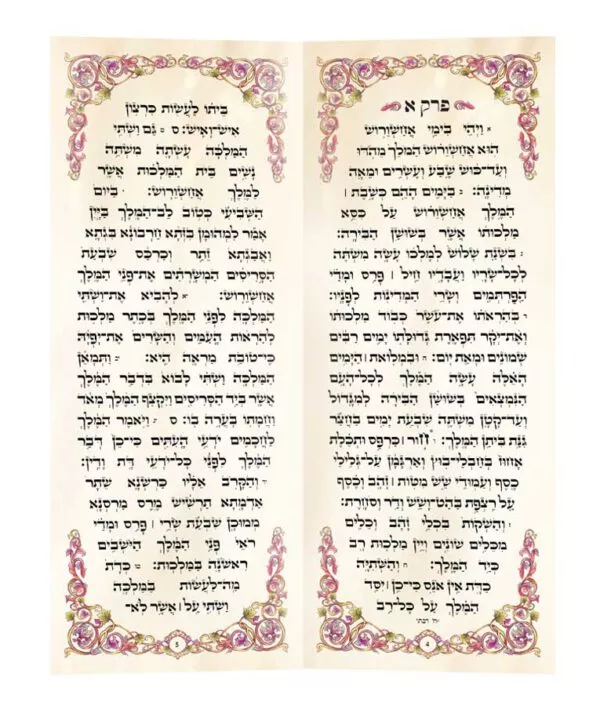 פרק א
א וַיְהִי בִּימֵי אֲחַשְׁוֵרוֹשׁ
הוּא אֲחַשְׁוֵרוֹשׁ הַמֹּלֵךְ מֵהֹדּוּ
וְעַד־כּוּשׁ שֶׁבַע וְעֶשְׂרִים וּמֵאָה
מְדִינָה: ב בַּיָּמִים הָהֵם כְּשֶׁבֶת ׀
הַמֶּלֶךְ אֲחַשְׁוֵרוֹשׁ עַל כִּסֵּא
מַלְכוּתוֹ אֲשֶׁר בְּשׁוּשַׁן הַבִּירָה:
ג בִּשְׁנַת שָׁלוֹשׁ לְמָלְכוֹ עָשָׂה מִשְׁתֶּה
לְכָל־שָׂרָיו וַעֲבָדָיו חֵיל ׀ פָּרַס וּמָדַי
הַפַּרְתְּמִים וְשָׂרֵי הַמְּדִינוֹת לְפָנָיו:
ד בְּהַרְאֹתוֹ אֶת־עֹשֶׁר כְּבוֹד מַלְכוּתוֹ
וְאֶת־יְקָר תִּפְאֶרֶת גְּדוּלָּתוֹ יָמִים רַבִּים
שְׁמוֹנִים וּמְאַת יוֹם: ה וּבִמְלוֹאת ׀ הַיָּמִים
הָאֵלֶּה עָשָׂה הַמֶּלֶךְ לְכָל־הָעָם
הַנִּמְצְאִים בְּשׁוּשַׁן הַבִּירָה לְמִגָּדוֹל
וְעַד־קָטָן מִשְׁתֶּה שִׁבְעַת יָמִים בַּחֲצַר
גִּנַּת בִּיתַן הַמֶּלֶךְ: ו חוּר ׀ כַּרְפַּס וּתְכֵלֶת
אָחוּז בְּחַבְלֵי־בוּץ וְאַרְגָּמָן עַל־גְּלִילֵי
כֶסֶף וְעַמּוּדֵי שֵׁשׁ מִטּוֹת ׀ זָהָב וָכֶסֶף
עַל רִצְפַת בַּהַט־וָשֵׁשׁ וְדַר וְסֹחָרֶת:
ז וְהַשְׁקוֹת בִּכְלֵי זָהָב וְכֵלִים
מִכֵּלִים שׁוֹנִים וְיֵין מַלְכוּת רָב
כְּיַד הַמֶּלֶךְ: ח וְהַשְּׁתִיָּה
כַדָּת אֵין אֹנֵס כִּי־כֵן ׀ יִסַּד
הַמֶּלֶךְ עַל כָּל־רַב
4
בֵּיתוֹ לַעֲשׂוֹת כִּרְצוֹן
אִישׁ־וָאִישׁ: ס ט גַּם וַשְׁתִּי
הַמַּלְכָּה עָשְׂתָה מִשְׁתֵּה
נָשִׁים בֵּית הַמַּלְכוּת אֲשֶׁר
לַמֶּלֶךְ אֲחַשְׁוֵרוֹשׁ: י בַּיּוֹם
הַשְּׁבִיעִי כְּטוֹב לֵב־הַמֶּלֶךְ בַּיָּיִן
אָמַר לִמְהוּמָן בִּזְּתָא חַרְבוֹנָא בִּגְתָא
וַאֲבַגְתָא זֵתַר וְכַרְכַּס שִׁבְעַת
הַסָּרִיסִים הַמְשָׁרְתִים אֶת־פְּנֵי הַמֶּלֶךְ
אֲחַשְׁוֵרוֹשׁ: יא לְהָבִיא אֶת־וַשְׁתִּי
הַמַּלְכָּה לִפְנֵי הַמֶּלֶךְ בְּכֶתֶר מַלְכוּת
לְהַרְאוֹת הָעַמִּים וְהַשָּׂרִים אֶת־יָפְיָהּ
כִּי־טוֹבַת מַרְאֶה הִיא: יב וַתְּמָאֵן
הַמַּלְכָּה וַשְׁתִּי לָבוֹא בִּדְבַר הַמֶּלֶךְ
אֲשֶׁר בְּיַד הַסָּרִיסִים וַיִּקְצֹף הַמֶּלֶךְ מְאֹד
וַחֲמָתוֹ בָּעֲרָה בוֹ: ס יג וַיֹּאמֶר הַמֶּלֶךְ
לַחֲכָמִים יֹדְעֵי הָעִתִּים כִּי־כֵן דְּבַר
הַמֶּלֶךְ לִפְנֵי כָּל־יֹדְעֵי דָּת וָדִין:
יד וְהַקָּרֹב אֵלָיו כַּרְשְׁנָא שֵׁתָר
אַדְמָתָא תַרְשִׁישׁ מֶרֶס מַרְסְנָא
מְמוּכָן שִׁבְעַת שָׂרֵי ׀ פָּרַס וּמָדַי
רֹאֵי פְּנֵי הַמֶּלֶךְ הַיֹּשְׁבִים
רִאשֹׁנָה בַּמַּלְכוּת: טו כְּדָת
מַה־לַּעֲשׂוֹת בַּמַּלְכָּה
וַשְׁתִּי עַל ׀ אֲשֶׁר לֹא־
5